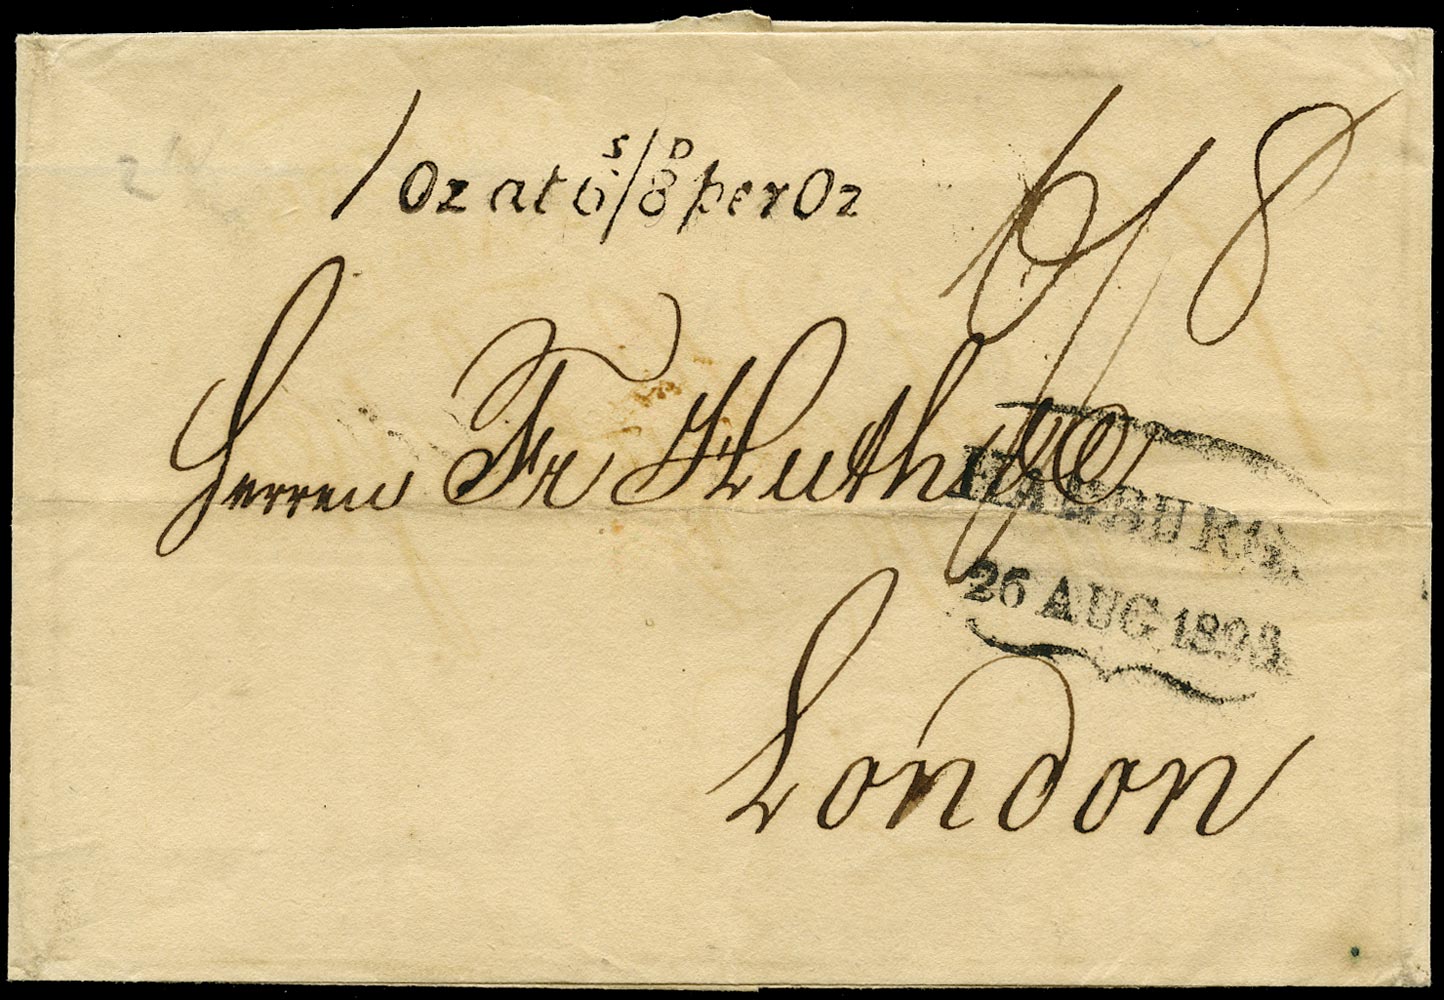 / Oz at 6 S/8 D per Oz
6/8
Herren Fr Huth & Co
HAMBURG
26 AUG 18
London